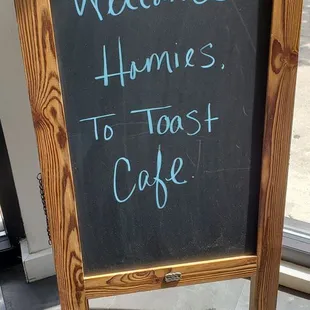 Welcome
Homies.
To Toast
Cafe.